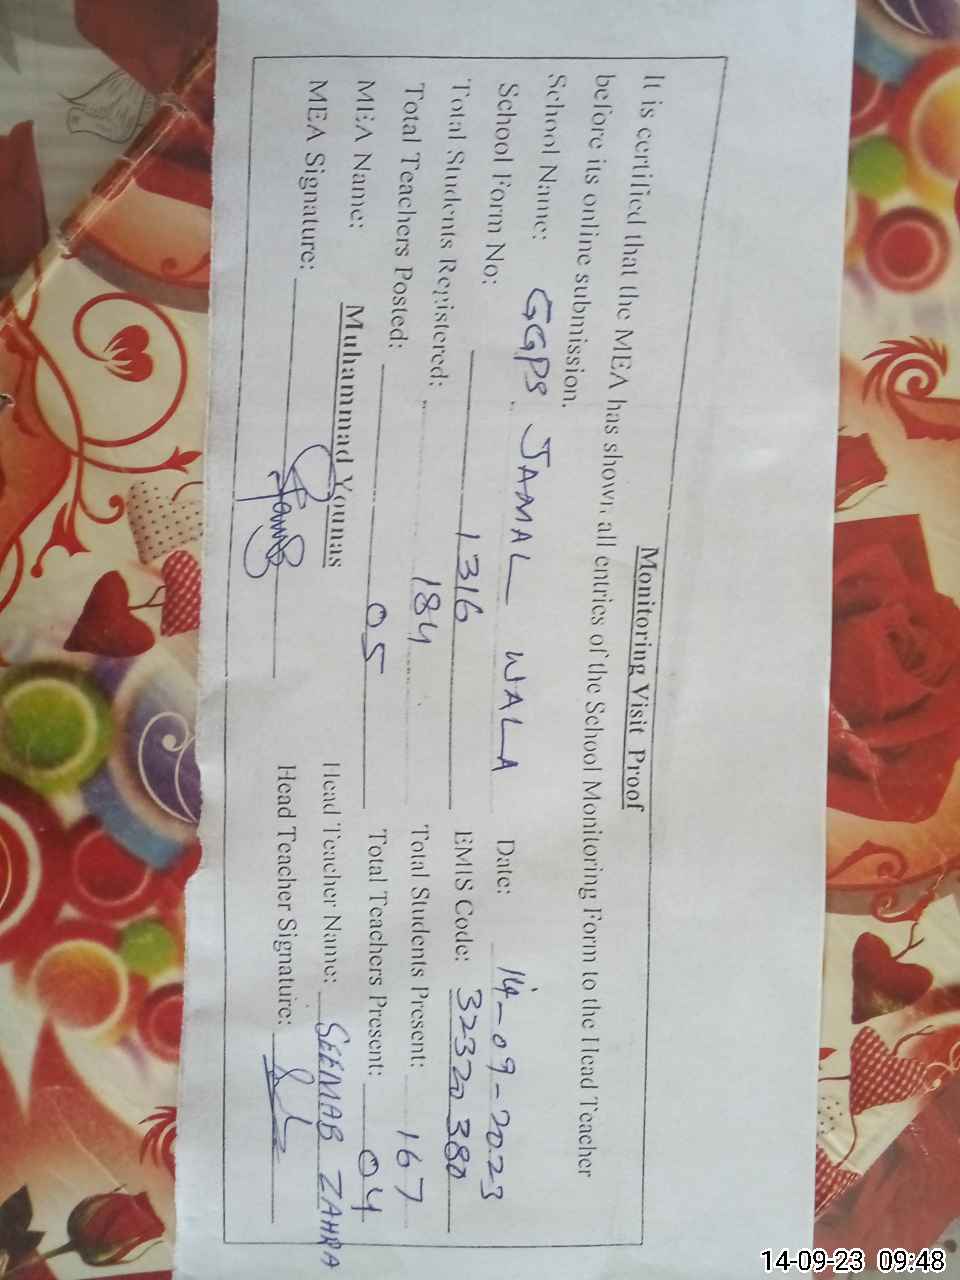 Monitoring Visit Proof
It is certified that the MEA has shown, all entries of the School Monitoring Form to the Head Teacher
before its online submission.
School Name: GGPS JAMAL WALA Date: 14-09-2023
School Form No: 1316 EMIS Code: 32320380
Total Students Registered: 184 Total Students Present: 167
Total Teachers Posted: 05 Total Teachers Present: 04
MEA Name: Muhammad Younas Head Teacher Name: SEEMAB ZAHRA
MEA Signature: Head Teacher Signature:
14-09-23 09:48